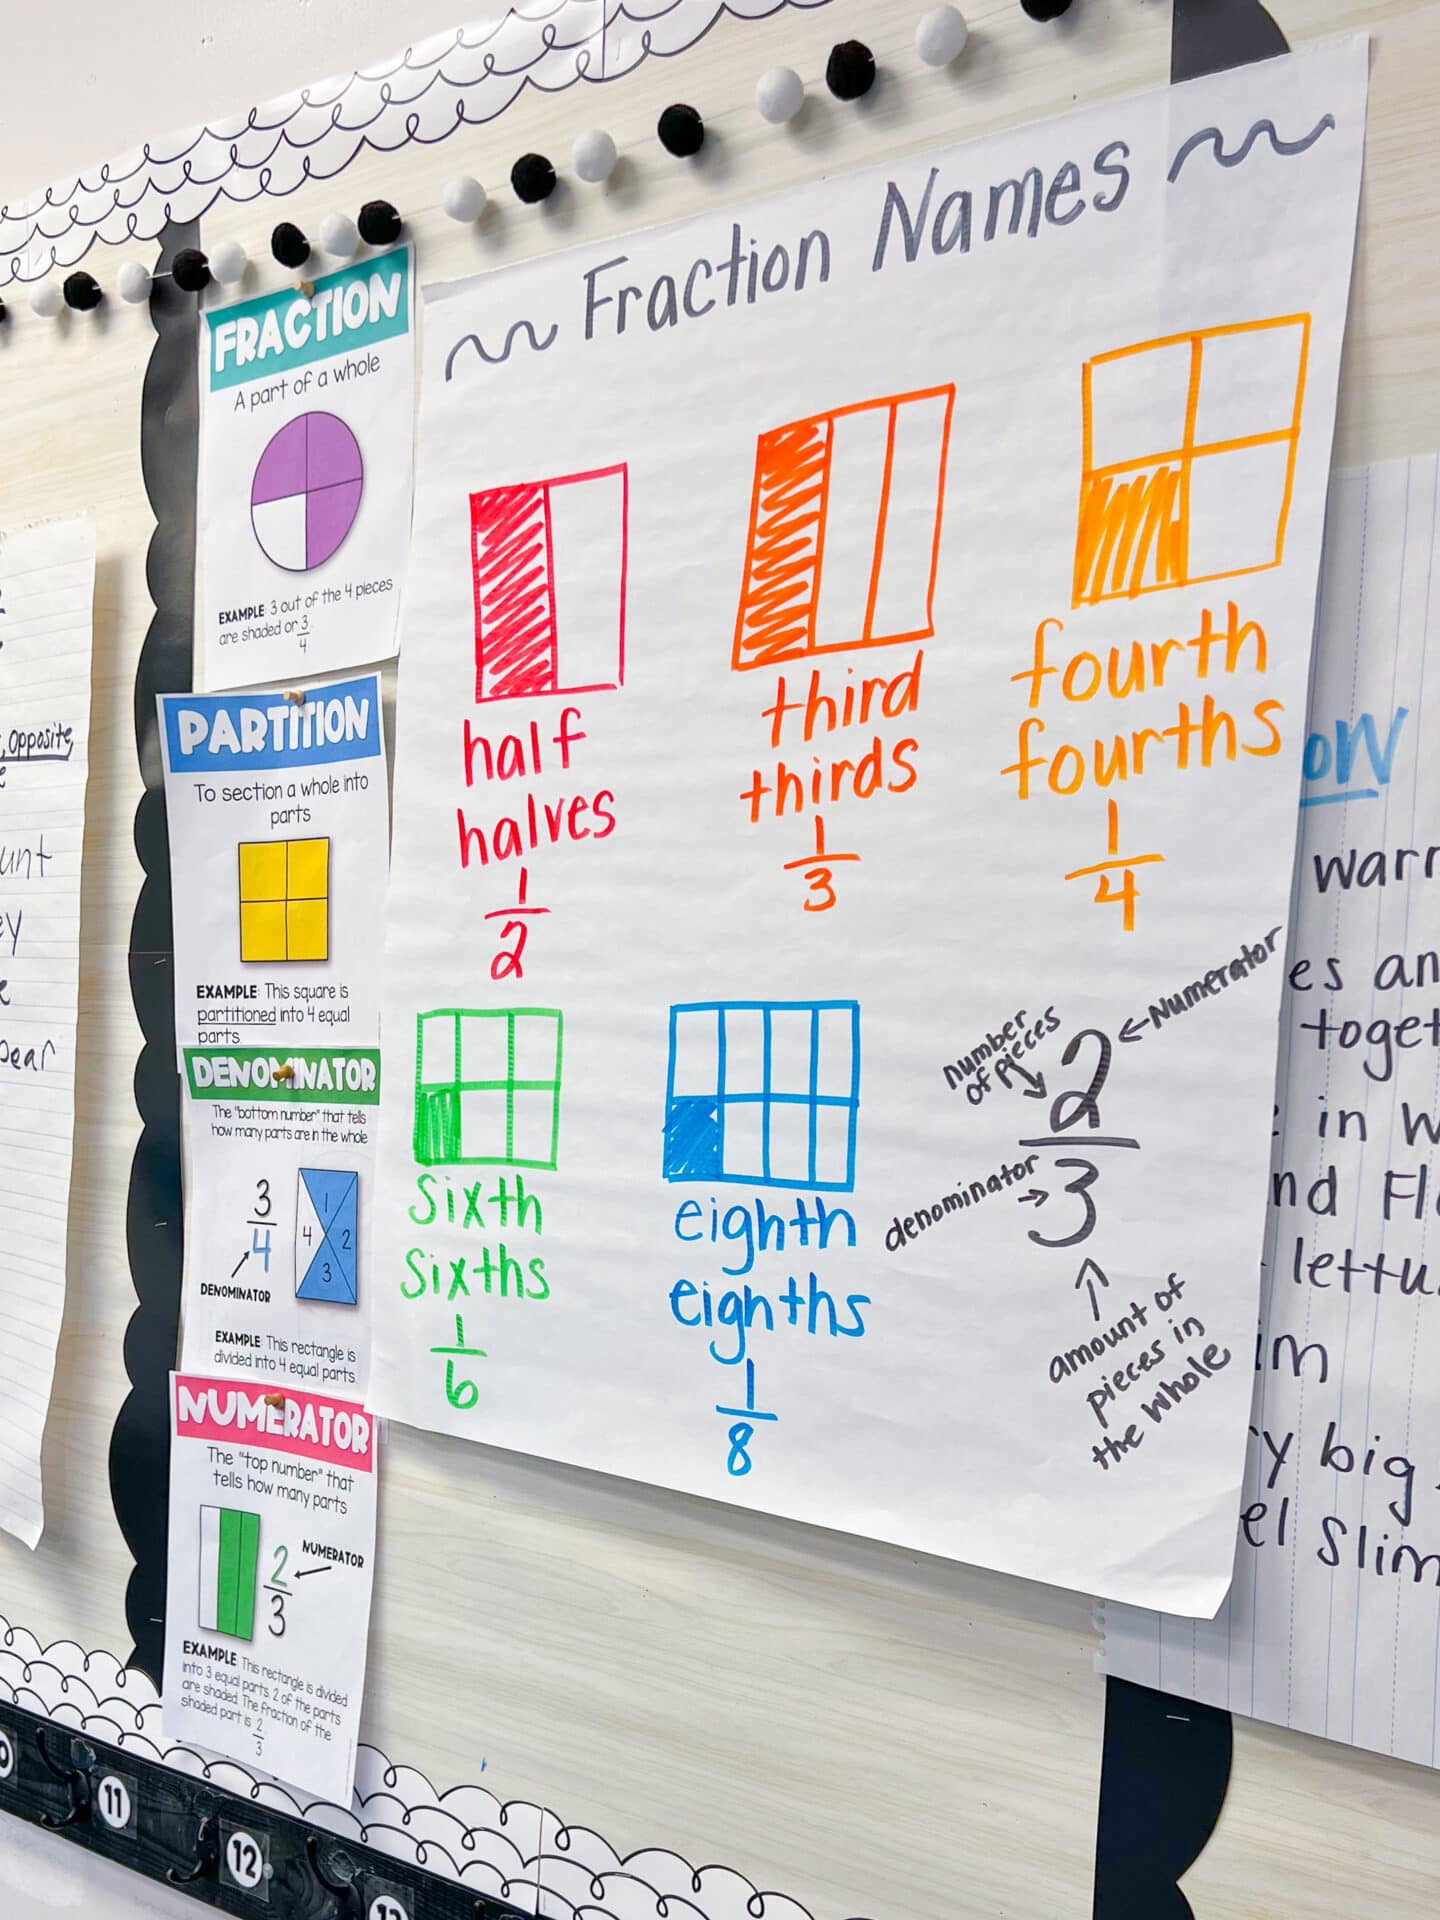 Fraction Names
half
halves
1
2
third
thirds
1
3
fourth
fourths
1
4
sixth
sixths
1
6
eighth
eighths
1
8
number
of pieces
2
Numerator
denominator
3
amount of
pieces in
the whole
FRACTION
A part of a whole
EXAMPLE: 3 out of the 4 pieces
are shaded or 3
4
PARTITION
To section a whole into
parts
EXAMPLE: This square is
partitioned into 4 equal
parts.
DENOMINATOR
The "bottom number" that tells
how many parts are in the whole
3
4
DENOMINATOR
1
2
3
4
EXAMPLE: This rectangle is
divided into 4 equal parts.
NUMERATOR
The "top number" that
tells how many parts
2
3
NUMERATOR
EXAMPLE: This rectangle is divided
into 3 equal parts. 2 of the parts
are shaded. The fraction of the
shaded part is 2
3
opposite,
in
big
slim
11
12